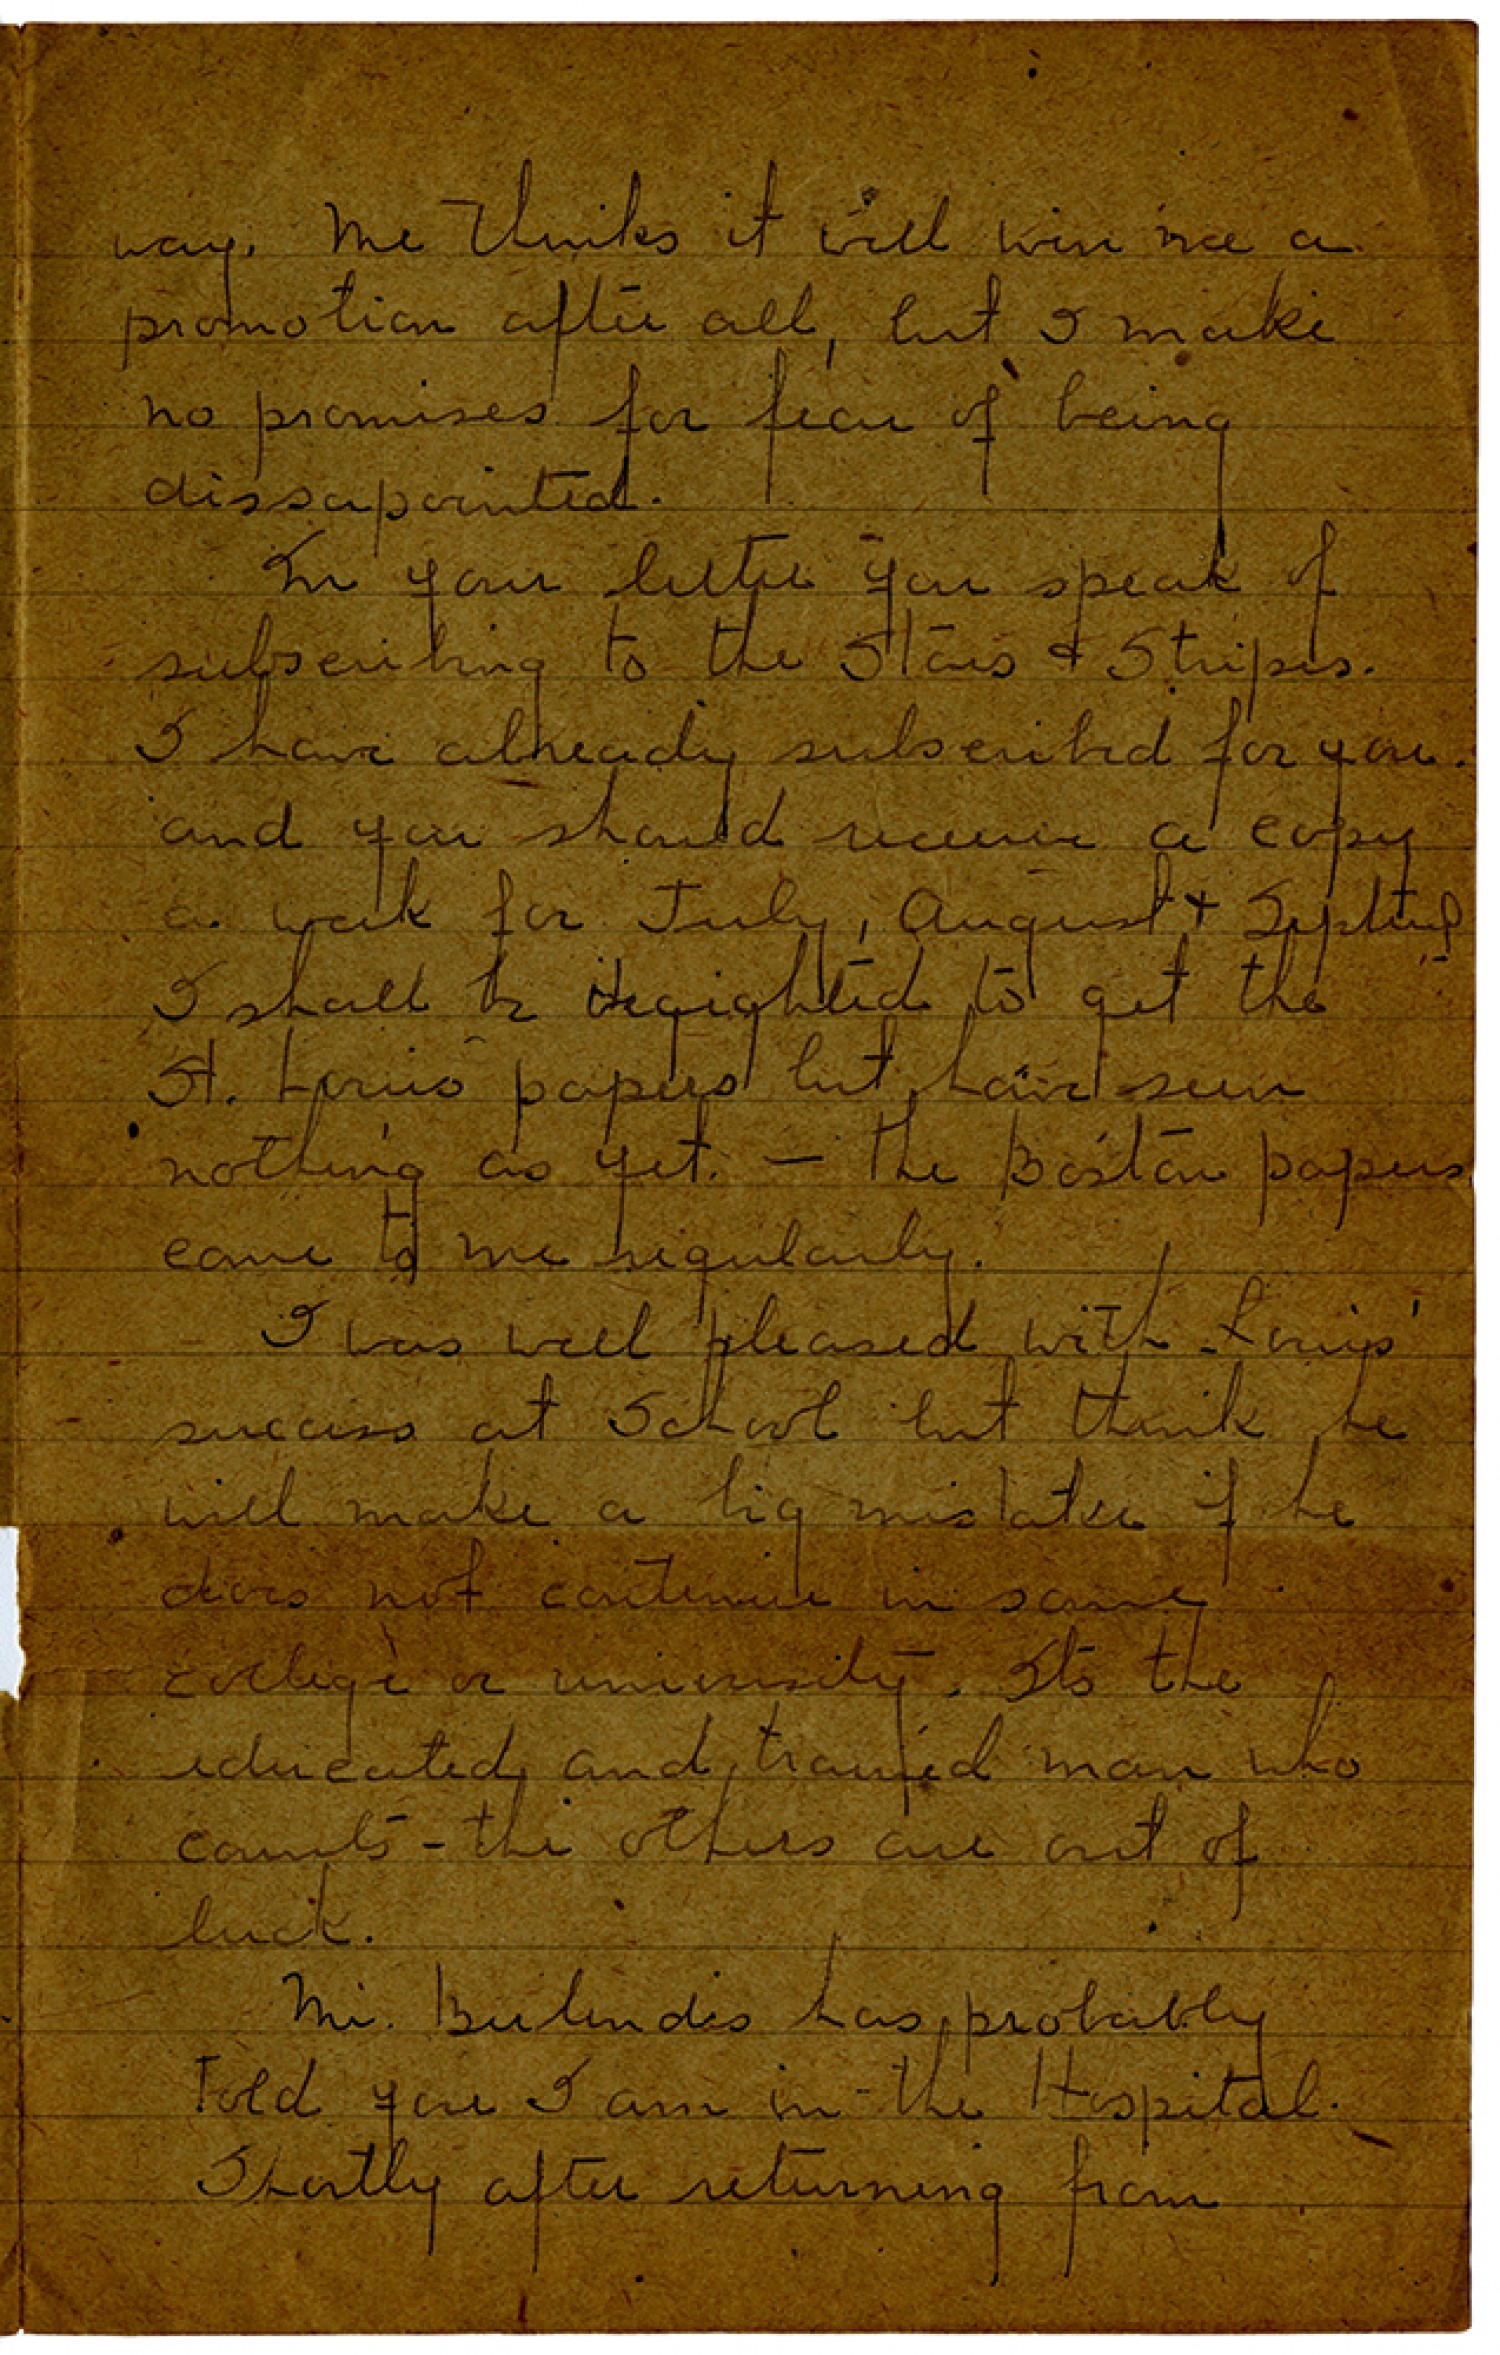 way. Me thinks it will win me a
promotion after all, but I make
no promises for fear of being
dissapointed.
In your letter you speak of
subscribing to the Stars & Stripes.
I have already subscribed for you.
and you should receive a copy
a week for July, August & Septemb
I shall be to get the
St. Louis papers but have seen
nothing as yet. — the Boston papers
come to me regularly.
I was well pleased with Louis'
success at School but think he
will make a big mistake if he
does not continue in some
college or university. Its the
educated and trained man who
counts - the others are out of
luck.
Mr. has probably
told you I am in the Hospital.
Shortly after returning from